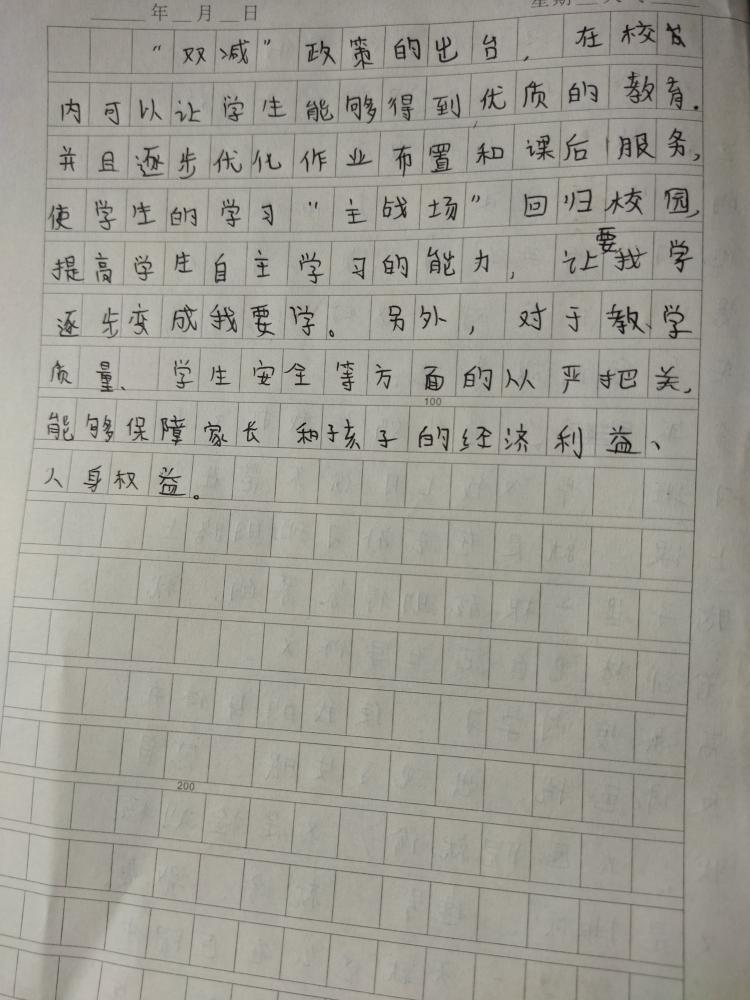 年 月 日
星期
“双减”政策的出台，在校
内可以让学生能够得到优质的教育.
并且逐步优化作业布置和课后服务,
使学生的学习“主战场”回归校园,
提高学生自主学习的能力，让要我学
逐步变成我要学。另外，对于教学
质量、学生安全等方面的从严把关,
100
能够保障家长和孩子的经济利益、
人身权益。
200